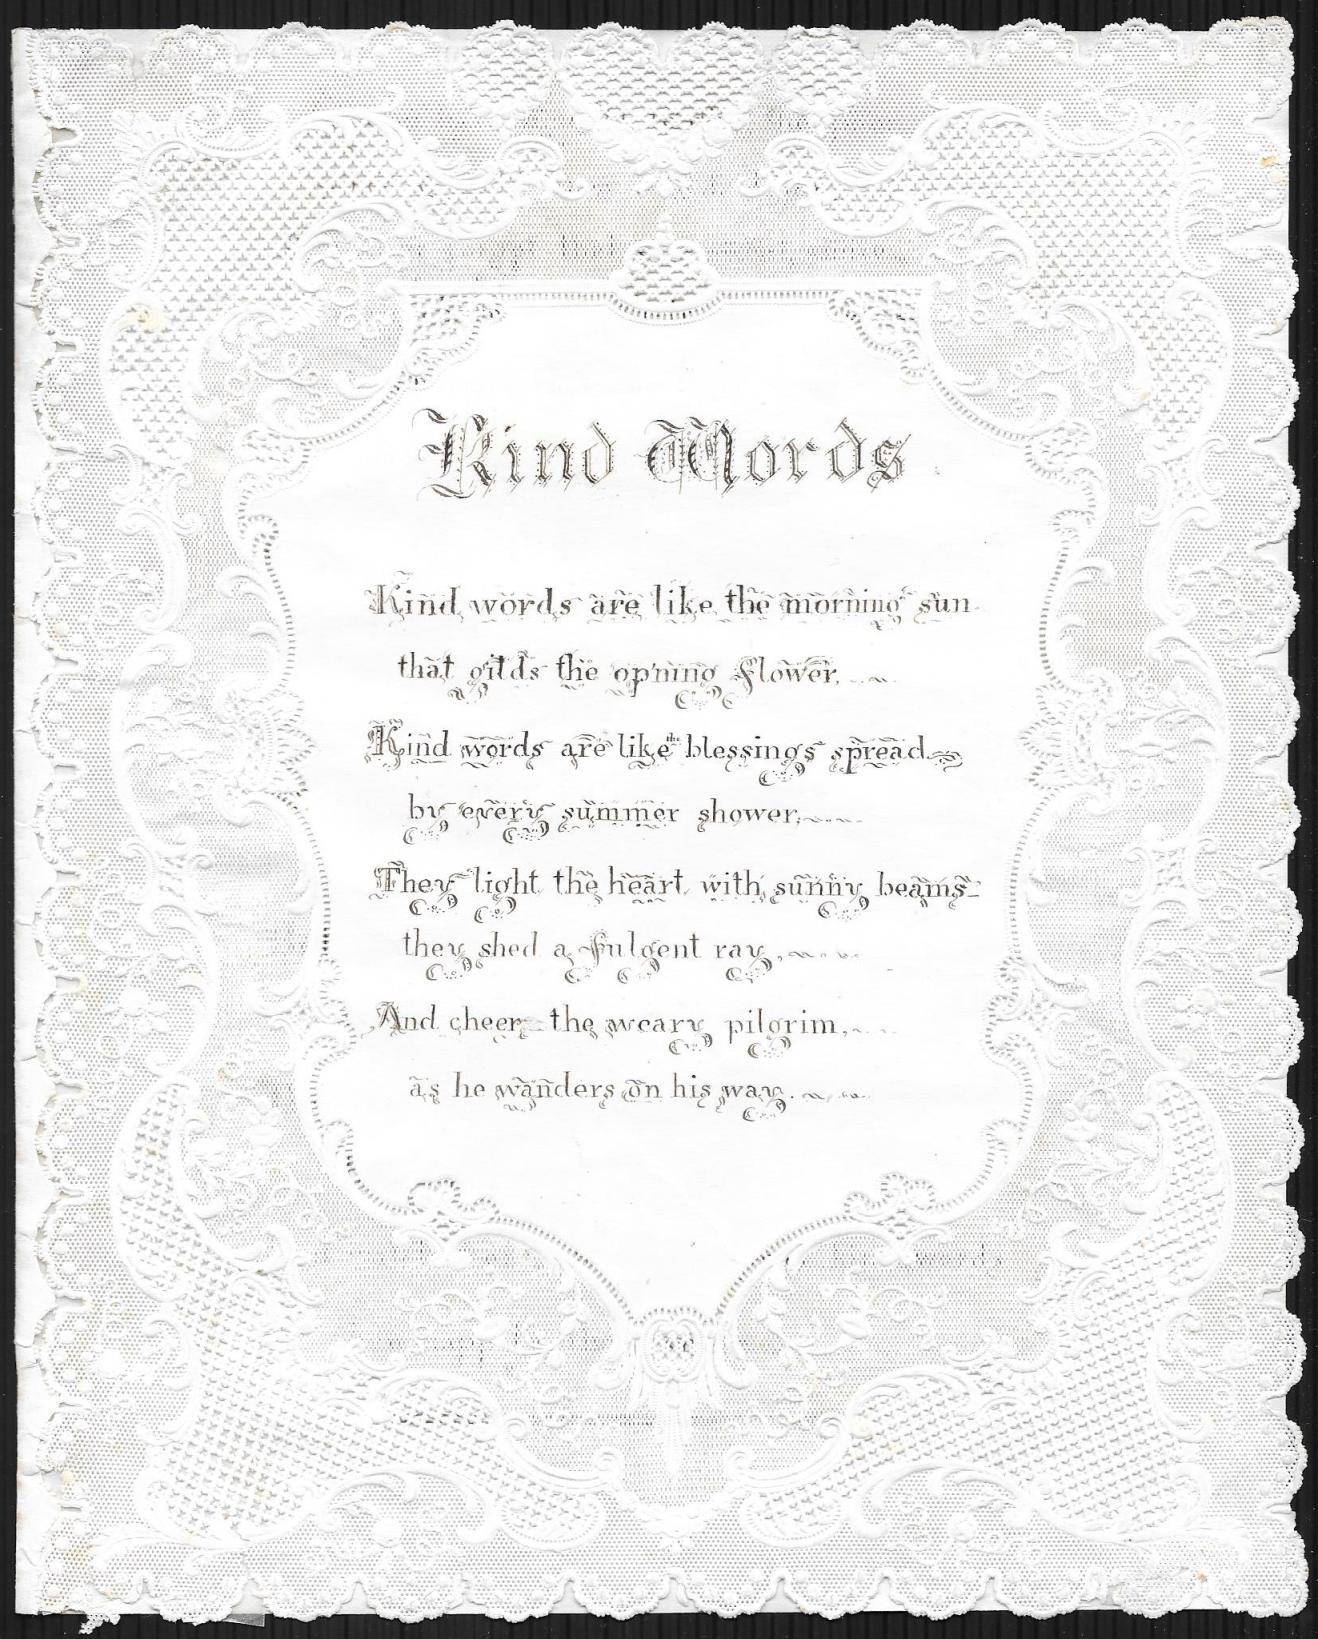 Kind Words
Kind words are like the morning sun
that gilds the op'ning flower,
Kind words are like the blessings spread
by every summer shower,
They light the heart with sunny beams
they shed a fulgent ray,
And cheer the weary pilgrim,
as he wanders on his way.